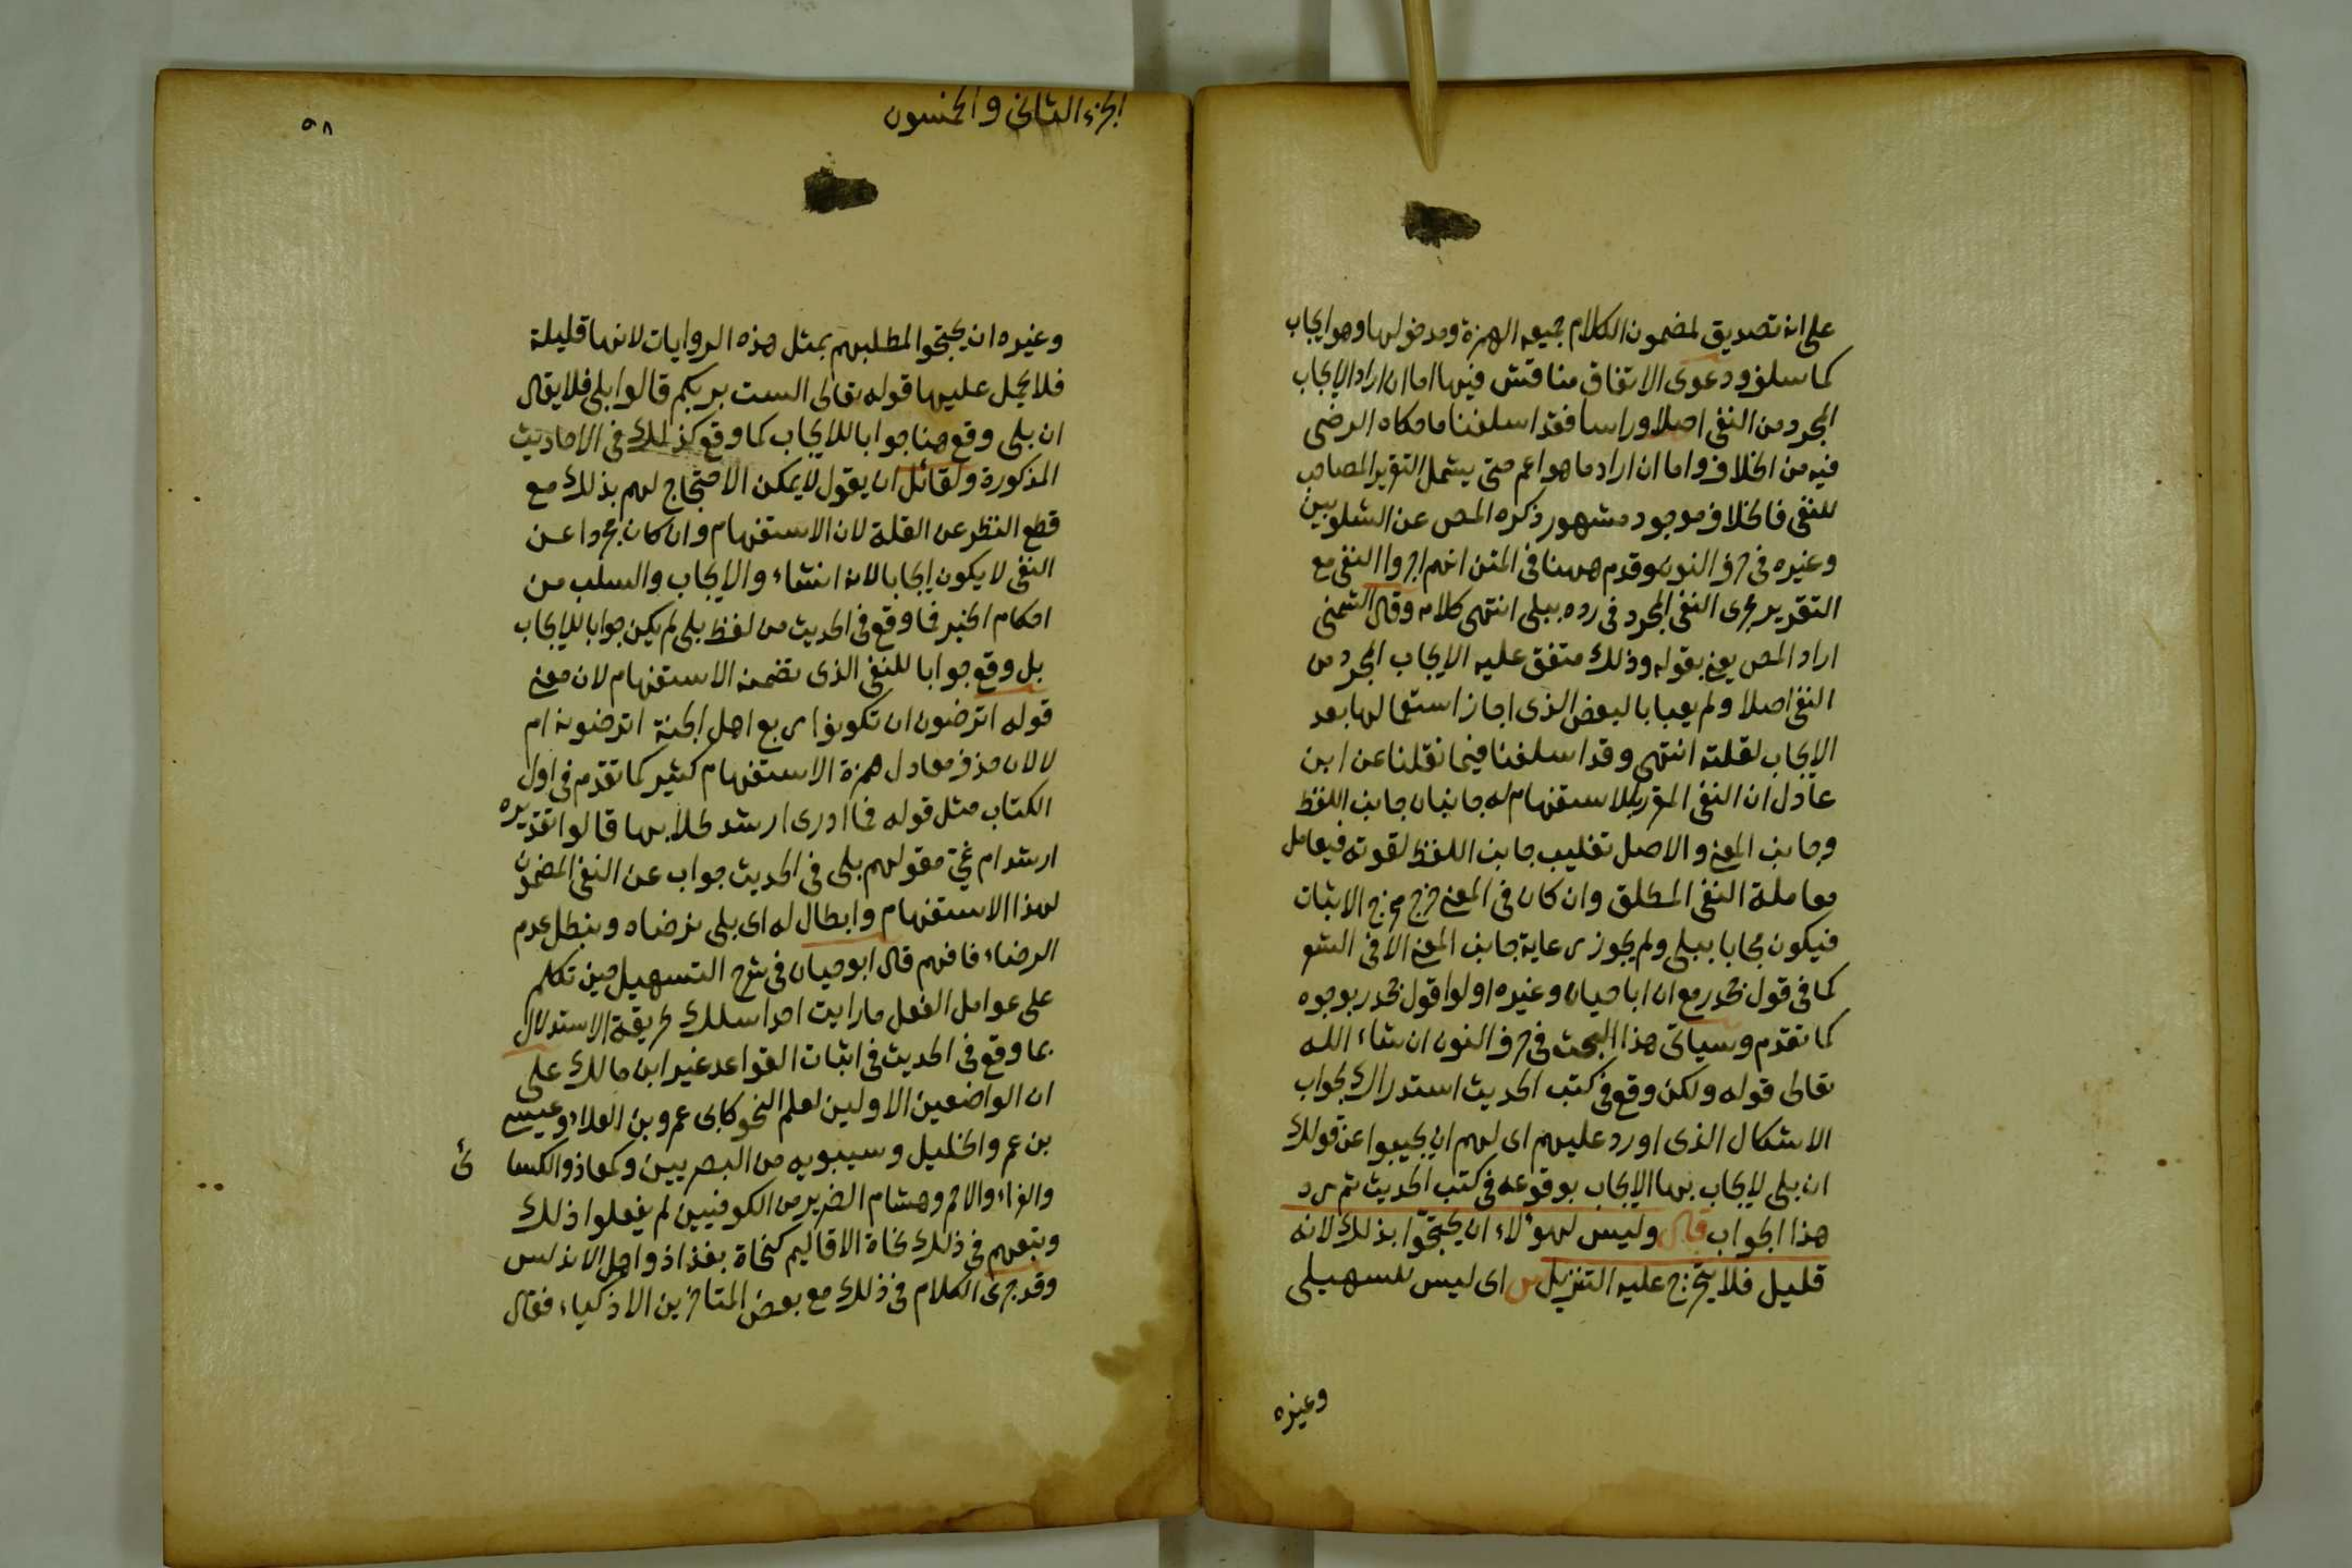 على انه تصديق لمضمون الكلام جميعه الهمزة ومدخولها وهو ايجاب
كما سلف ودعوى الاتفاق مناقش فيها اما ان اراد الايجاب
المجرد من النفى اصلا وراسا فقد اسلفنا ما حكاه الرضى
فيه من الخلاف واما ان اراد ما هو اعم حتى يشمل التقرير المصاحب
للنفى فالخلاف موجود مشهور ذكره المص عن الشلوبين
وغيره فى حرف النون وقدم ههنا فى المتن انهم اجروا النفى مع
التقرير مجرى النفى المجرد فى رده ببلى انتهى كلامه وقال الشمنى
اراد المص يعنى بقوله وذلك متفق عليه الايجاب المجرد من
النفى اصلا ولم يعبا بالبعض الذى اجاز استعمالها بعد
الايجاب لقلته انتهى وقد اسلفنا فيما نقلنا عن ابن
عادل ان النفى المقرر بالاستفهام له جانبان جانب اللفظ
وجانب المعنى والاصل تغليب جانب اللفظ لقوته فيعامل
معاملة النفى المطلق وان كان فى المعنى خرج مخرج الاثبات
فيكون مجابا ببلى ولم يجوز رعاية جانب المعنى الا فى الشعر
كما فى قول جحدر مع ان ابا حيان وغيره اولوا قول جحدر بوجوه
كما تقدم وسياتى هذا البحث فى حرف النون ان شاء الله
تعالى قوله ولكن وقع فى كتب الحديث استدراك لجواب
الاشكال الذى اورد عليهم اى لهم ان يجيبوا عن قولك
ان بلى لايجاب بها الايجاب بوقوعه فى كتب الحديث ثم رد
هذا الجواب قال وليس لهؤلاء ان يحتجوا بذلك لانه
قليل فلا يتخرج عليه التنزيل ش اى ليس للسهيلى
وغيره
الجزء الثانى والخمسون
٥٨
وغيره ان يحتجوا لمطلبهم بمثل هذه الروايات لانها قليلة
فلا يحمل عليها قوله تعالى الست بربكم قالوا بلى فلا يقال
ان بلى وقع هنا جوابا للايجاب كما وقع كذلك فى الاحاديث
المذكورة ولقائل ان يقول لا يمكن الاحتجاج لهم بذلك مع
قطع النظر عن القلة لان الاستفهام وان كان مجردا عن
النفى لا يكون ايجابا لانه انشاء والايجاب والسلب من
احكام الخبر فما وقع فى الحديث من لفظ بلى لم يكن جوابا للايجاب
بل وقع جوابا للنفى الذى تضمنه الاستفهام لان معنى
قوله اترضون ان تكونوا ربع اهل الجنة اترضونه ام
لا لان حذف معادل همزة الاستفهام كثير كما تقدم فى اول
الكتاب مثل قوله فما ادرى ارشد طلابها قالوا تقديره
ارشد ام غى فقولهم بلى فى الحديث جواب عن النفى المضمون
لهذا الاستفهام وابطال له اى بلى نرضاه ونبطل عدم
الرضاء فافهم قال ابو حيان فى شرح التسهيل حين تكلم
على عوامل الفعل ما رايت احدا سلك طريقة الاستدلال
بما وقع فى الحديث فى اثبات القواعد غير ابن مالك على
ان الواضعين الاولين لعلم النحو كابى عمرو بن العلاء وعيسى
بن عمر والخليل وسيبويه من البصريين وكمعاذ والكسائى
والفراء والاحمر وهشام الضرير من الكوفيين لم يفعلوا ذلك
وتبعهم فى ذلك نحاة الاقاليم كنحاة بغداذ واهل الاندلس
وقد جرى الكلام فى ذلك مع بعض المتاخرين الاذكياء فقال